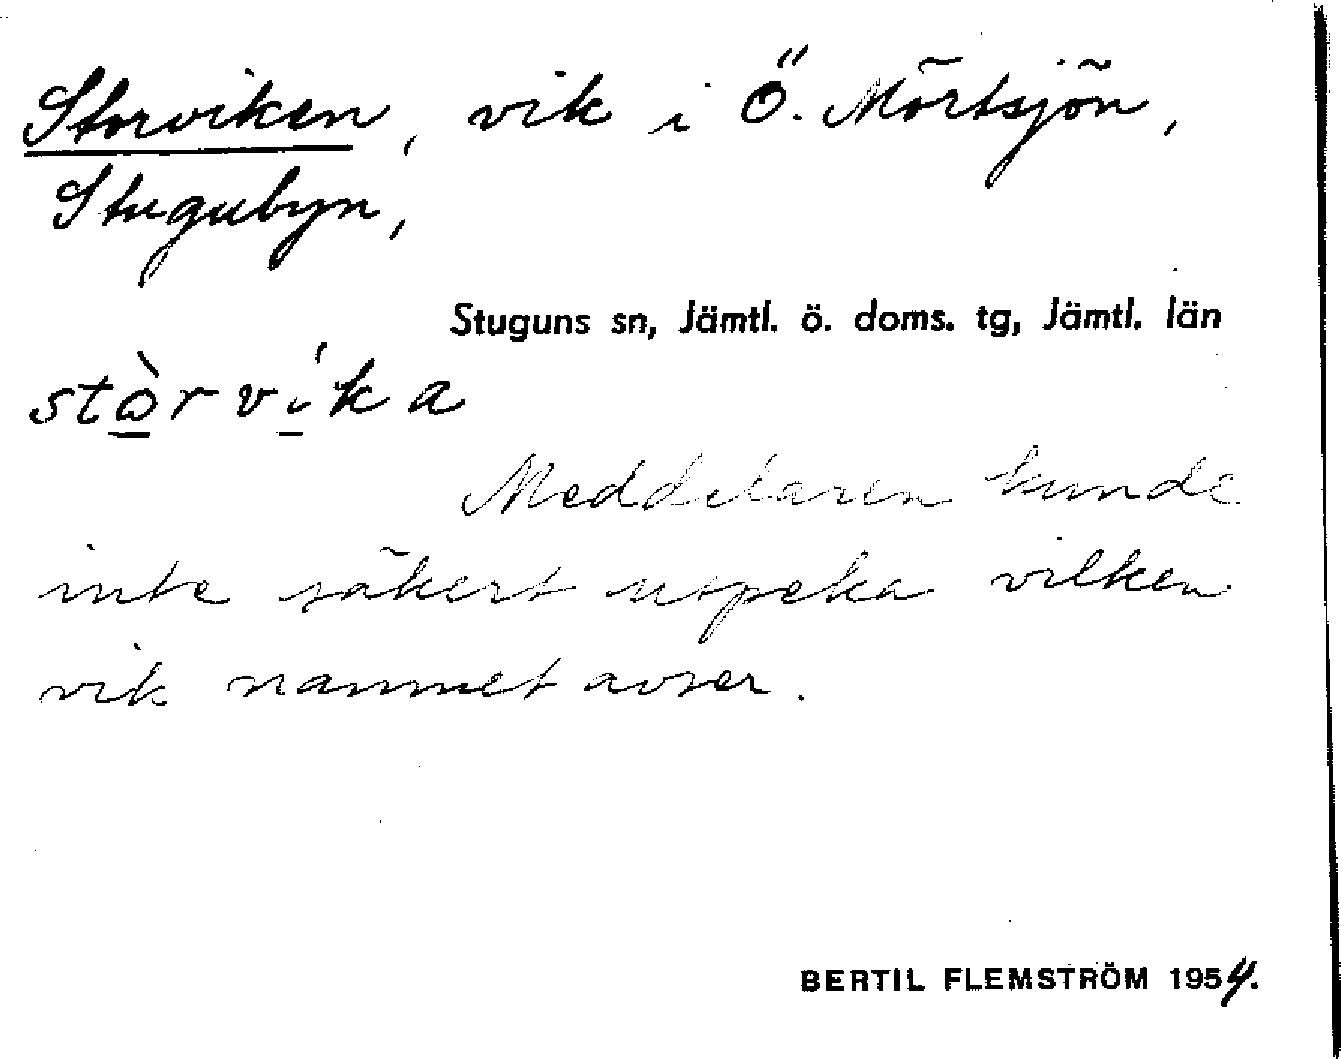 Storviken, vik i Ö. Mörtsjön,
Stugubyn,
Stuguns sn, Jämtl. ö. doms. tg, Jämtl. län
stὼ̲rví̲ka
Meddelaren kunde
inte säkert utpeka vilken
vik namnet avser.
BERTIL FLEMSTRÖM 1954.